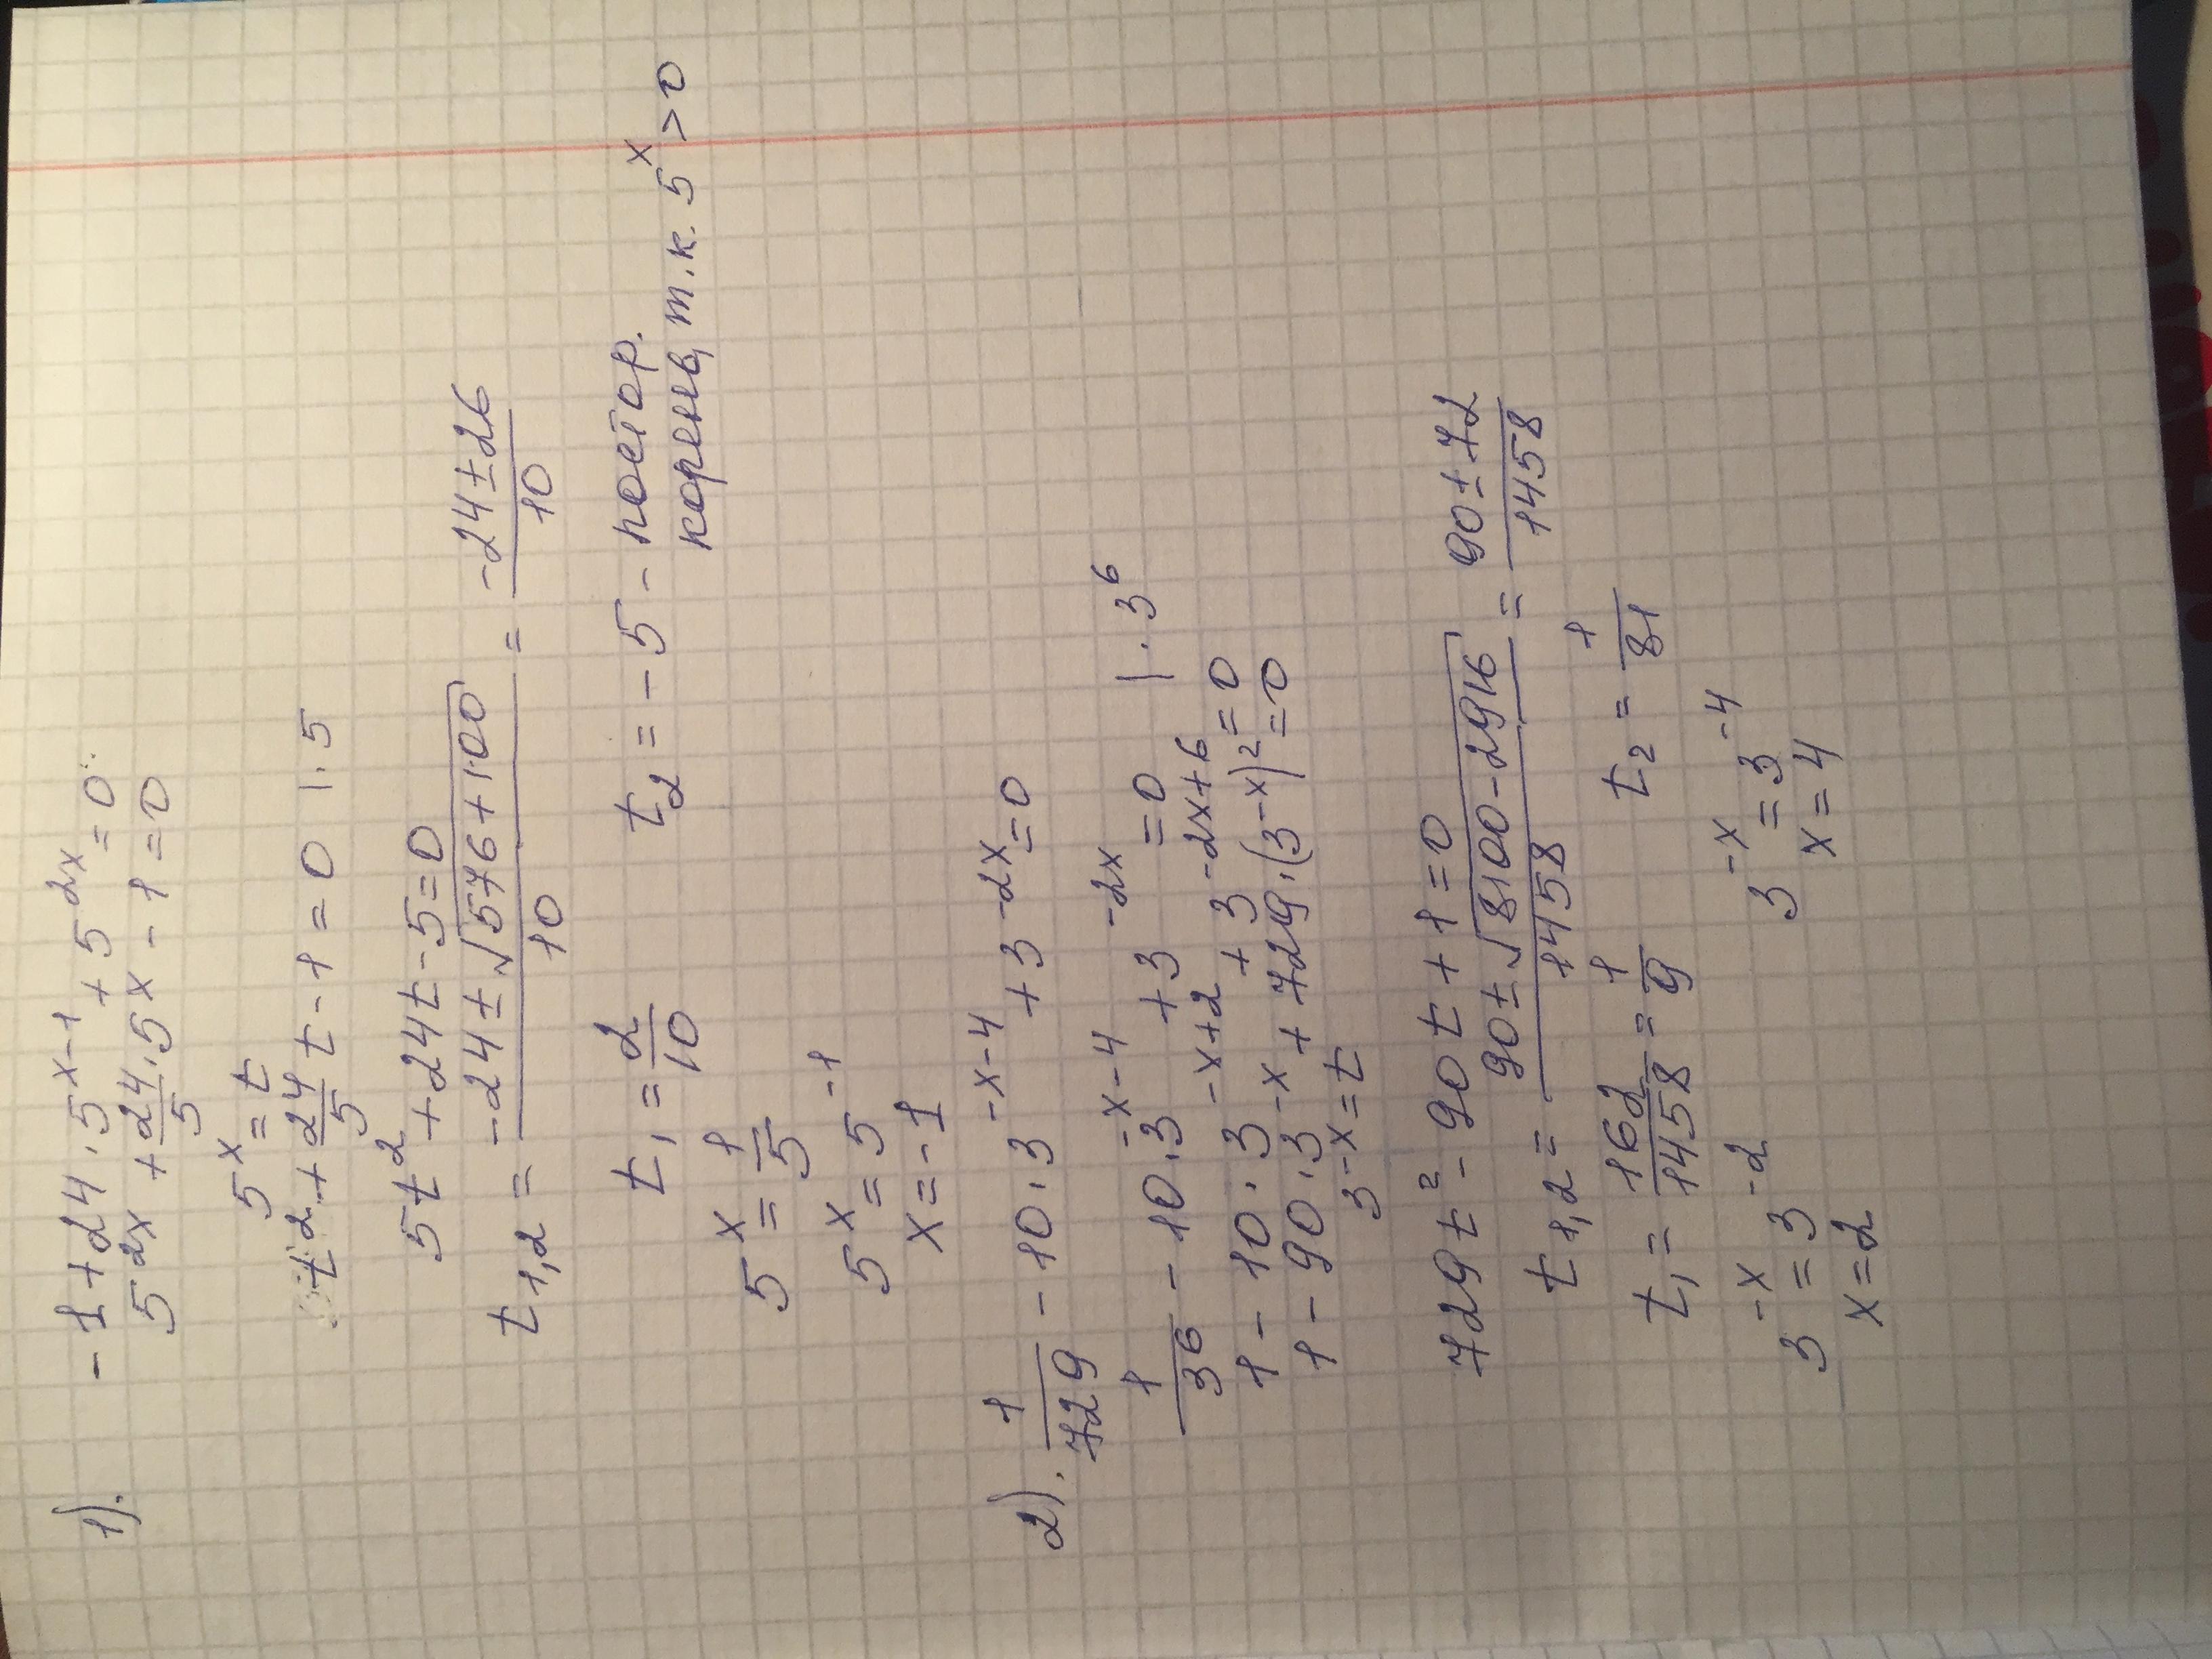 1). -1+24·5^{x-1}+5^{2x}=0
5^{2x}+\frac{24}{5}·5^x-1=0
5^x=t
t^2+\frac{24}{5}t-1=0 |·5
5t^2+24t-5=0
t_{1,2}=\frac{-24±\sqrt{576+100}}{10}=\frac{-24±26}{10}
t_1=\frac{2}{10} t_2=-5- постор.
корень, т.к. 5^x>0
5^x=\frac{1}{5}
5^x=5^{-1}
x=-1
2). \frac{1}{729}-10·3^{-x-4}+3^{-2x}=0
\frac{1}{3^6}-10·3^{-x-4}+3^{-2x}=0 |·3^6
1-10·3^{-x+2}+3^{-2x+6}=0
1-90·3^{-x}+729·(3^{-x})^2=0
3^{-x}=t
729t^2-90t+1=0
t_{1,2}=\frac{90±\sqrt{8100-2916}}{1458}=\frac{90±72}{1458}
t_1=\frac{162}{1458}=\frac{1}{9} t_2=\frac{1}{81}
3^{-x}=3^{-2} 3^{-x}=3^{-4}
x=2 x=4